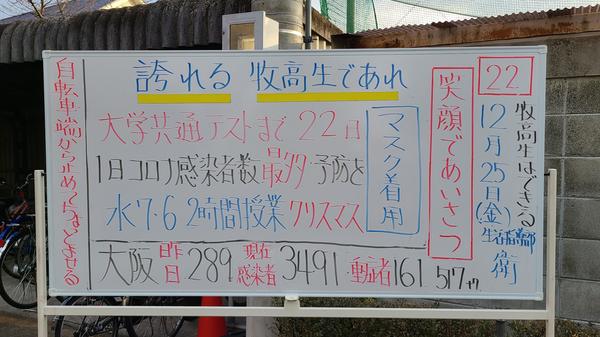 誇れる 牧高生であれ
大学共通テストまで22日
1日コロナ感染者数最多 予防を
水7・6 2時間授業 クリスマス
マスク着用
大阪 昨日 289 現在感染者 3491 重症者161 517ヶ
笑顔であいさつ
22
牧高生はできる
12月25日(金)
生活指導部
衛
自転車端から止めてちょっとませる